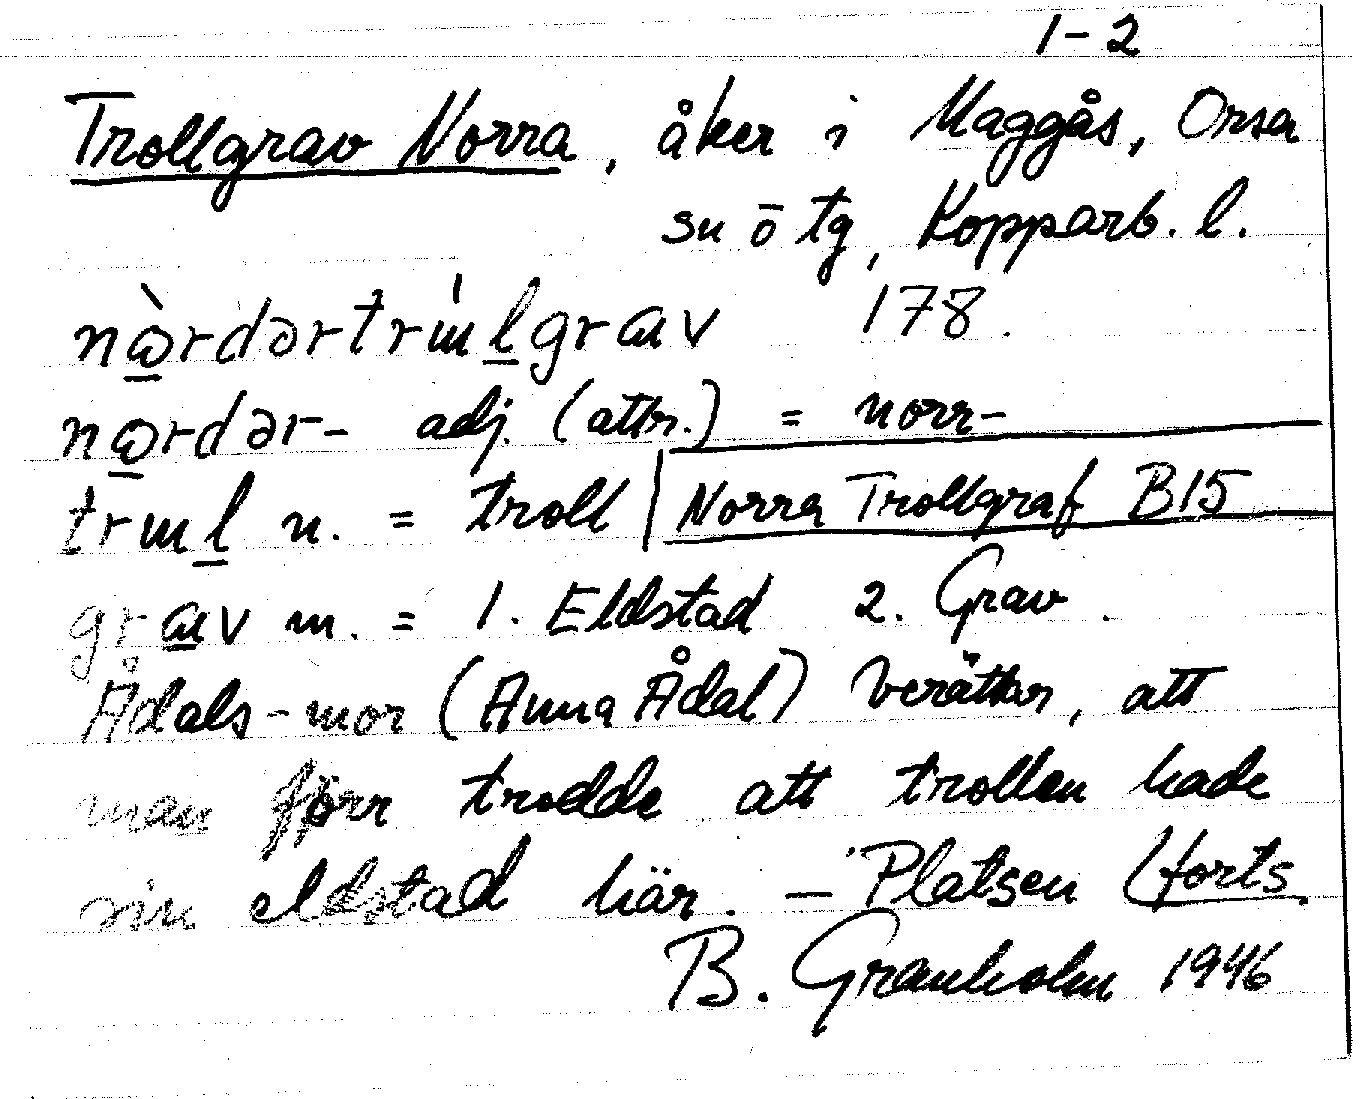 1-2
Trollgrav Norra, åker i Maggås, Orsa
sn ō tg, Kopparb. l.
nàrdərtrɯ́lgrav 178.
nardər- adj. (attr.) = norr-
trɯl n. = troll | Norra Trollgraf B15
grav m. = 1. Eldstad 2. Grav.
Ådals-mor (Anna Ådal) berättar, att
man förr trodde att trollen hade
sin eldstad här. – Platsen (forts.
B. Granholm 1946